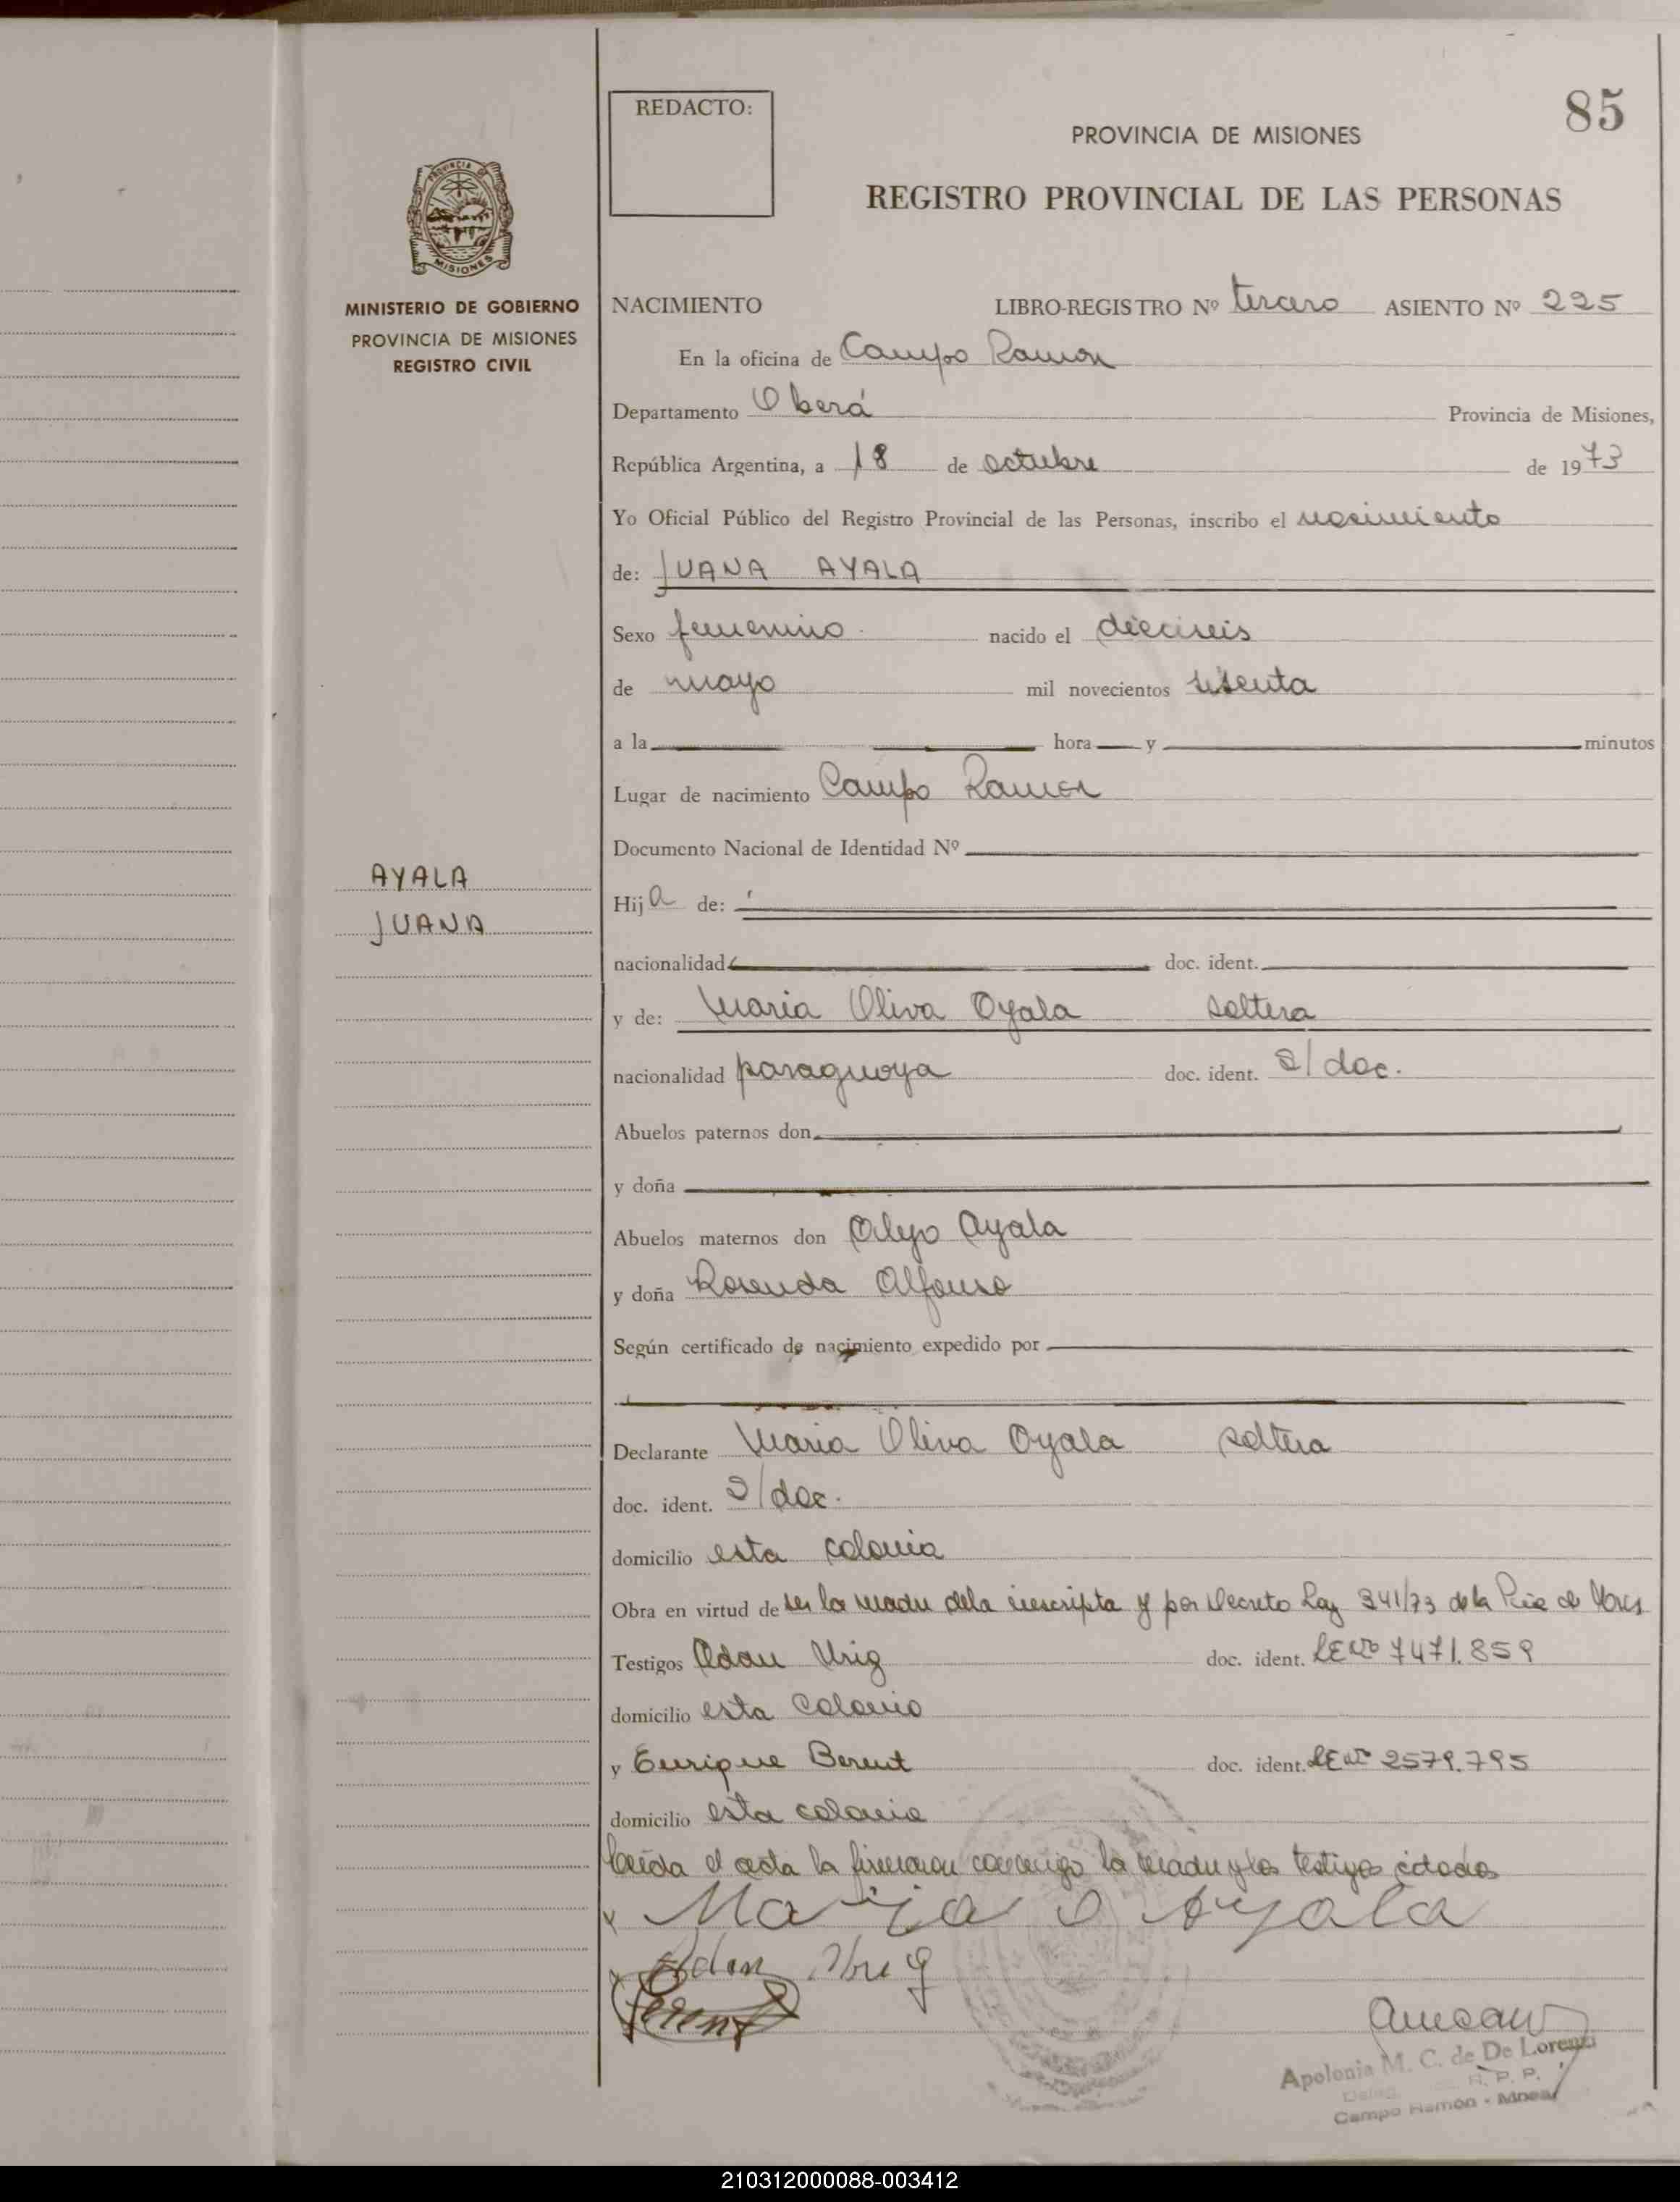 85
REDACTO:
PROVINCIA DE MISIONES
REGISTRO PROVINCIAL DE LAS PERSONAS
PROVINCIA DE
MISIONES
MINISTERIO DE GOBIERNO
PROVINCIA DE MISIONES
REGISTRO CIVIL
NACIMIENTO LIBRO-REGISTRO Nº tercero ASIENTO Nº 225
En la oficina de Campo Ramon
Departamento Oberá Provincia de Misiones,
República Argentina, a 18 de octubre de 1973
Yo Oficial Público del Registro Provincial de las Personas, inscribo el nacimiento
de: JUANA AYALA
Sexo femenino nacido el dieciseis
de mayo mil novecientos
a la hora y minutos
Lugar de nacimiento Campo Ramon
Documento Nacional de Identidad Nº
AYALA
JUANA
Hija de:
nacionalidad doc. ident.
y de: Maria Oliva Ayala soltera
nacionalidad paraguaya doc. ident. S/doc.
Abuelos paternos don
y doña
Abuelos maternos don Alejo Ayala
y doña Rosenda Alfonso
Según certificado de nacimiento expedido por
Declarante Maria Oliva Ayala soltera
doc. ident. S/doc.
domicilio esta colonia
Obra en virtud de ser la madre de la inscripta y por Decreto Ley 341/73 de la Pcia de Mnes
Testigos Adan doc. ident. LE Nº 7471.859
domicilio esta colonia
y Enrique Berent doc. ident. LE Nº 2579.795
domicilio esta colonia
Leída el acta la firmaron conmigo la madre y los testigos citados
Maria O Ayala
Adan
Berent
Apolonia M. C. de De Lorenzi
R. P. P.
Campo Ramon - Mnes
210312000088-003412